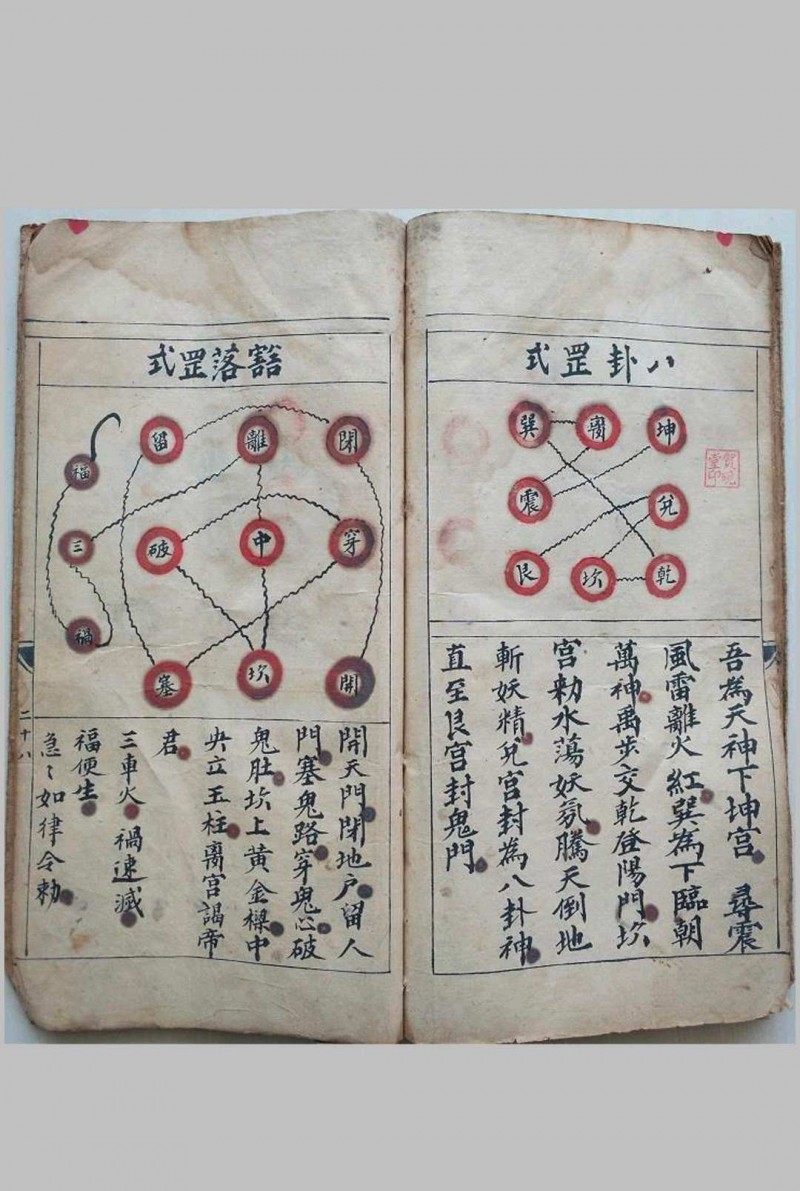 八卦罡式
坤 离 巽
兌 震
乾 坎 艮
吾為天神下坤宫 尋震
風雷離火紅巽為下臨朝
萬神禹步交乾登陽門坎
宫勑水蕩妖氛騰天倒地
斬妖精兌宫封為八卦神
直至艮宫封鬼門
豁落罡式
閉 離 留
穿 中 破
開 坎 塞
福
三
禍
開天門閉地户留人
門塞鬼路穿鬼心破
鬼肚坎上黄金樑中
央立玉柱离宫謁帝
君
三車火 禍速滅
福便生
急〻如律令勅
二十八